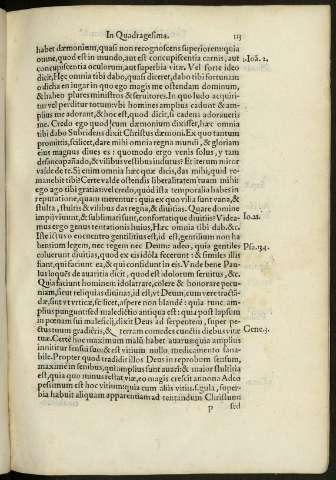 In Quadragesima. 113
habet dæmonium, quasi non recognoscens superiorem: quia
omne, quod est in mundo, aut est concupiscentia carnis, aut 1.Ioā. 2.
concupiscentia oculorum, aut superbia vitæ. Vel forte ideo
dicit, Hęc omnia tibi dabo, quasi diceret, dabo tibi fortunam
o dicha en iugar in quo ego magis me ostendam dominum,
& habeo plures ministros & seruitores. In quo ludo acquiri
tur vel perditur totum: vbi homines amplius cadunt & am-
plius me adorant, & hoc est, quod dicit, si cadens adoraueris
me. Credo ego quod cum dæmonium dixisset, hæc omnia
tibi dabo Subridens dixit Christus dæmoni. Ex quo tantum
promittis, scilicet, dare mihi omnia regna mundi, & gloriam
eius magnus diues es: quomodo ergo venis solus, y tam
desmcapañado, & vilibus vestibus indutus: Et iterum miror
valde de te. Si enim omnia hæc quæ dicis, das mihi, quid ro-
manebit tibi? Certe valde ostendis liberalitatem tuam mihi:
ego ago tibi gratias: vel credo, quod ista temporalia habes in
reputatione, quam merentur: quia ex quo vilia sunt vana, &
stulta, stultis & vilibus das regna, & diuitias. Quare domine
impij viuunt, & sublimati sunt, confortatique diuitijs? Videa- Io. 21.
mus ergo genus tentationis huius, Hæc omnia tibi dab. &c.
Este ictus o encuentro gentilitatis est, id est, gentilium non ha
bentium legem, nec regem nec Deum: adeo, quia gentiles Psa. 134.
coluerunt diuitias, quod ex eis idola fecerunt: & similes illis
fiant, qui faciunt ea, & qui confidunt in eis. Vnde bene Pau-
lus loquēs de auaritia dicit, quod est idolorum seruitus, &c.
Quia faciunt hominem idolatrare, colere & honorare pecu-
niam, seu reliquias diuinas, id est, vt Deum, cum vere tractā-
dæ, sint vt vrticæ, scilicet, aspere non blande: quia tunc am-
plius pungunt: sed maledictio antiqua est: quia post lapsum
in pœnam sui maleficij, dixit Deus ad serpentem, super pe-
ctus tuum gradiēris, & terram comedes cunctis diebus vitæ Gene. 3.
tuæ. Certe hoc maximum malū habet auarus: quia amplius
innititur sensui suo: & est vitium nullo medicamento sana-
bile. Propter quod tradidit illos Deus in reprobum sensum,
maxime in senibus, qui amplius sunt auari: & maior stultitia
est, quia quo minus restat viæ, eo magis crescit annona Adeo
pessimum est hoc vitium: quia cum alijs vitijs. s. gula, super-
bia habuit aliquam apparentiam ad tentandum Christum
P sed